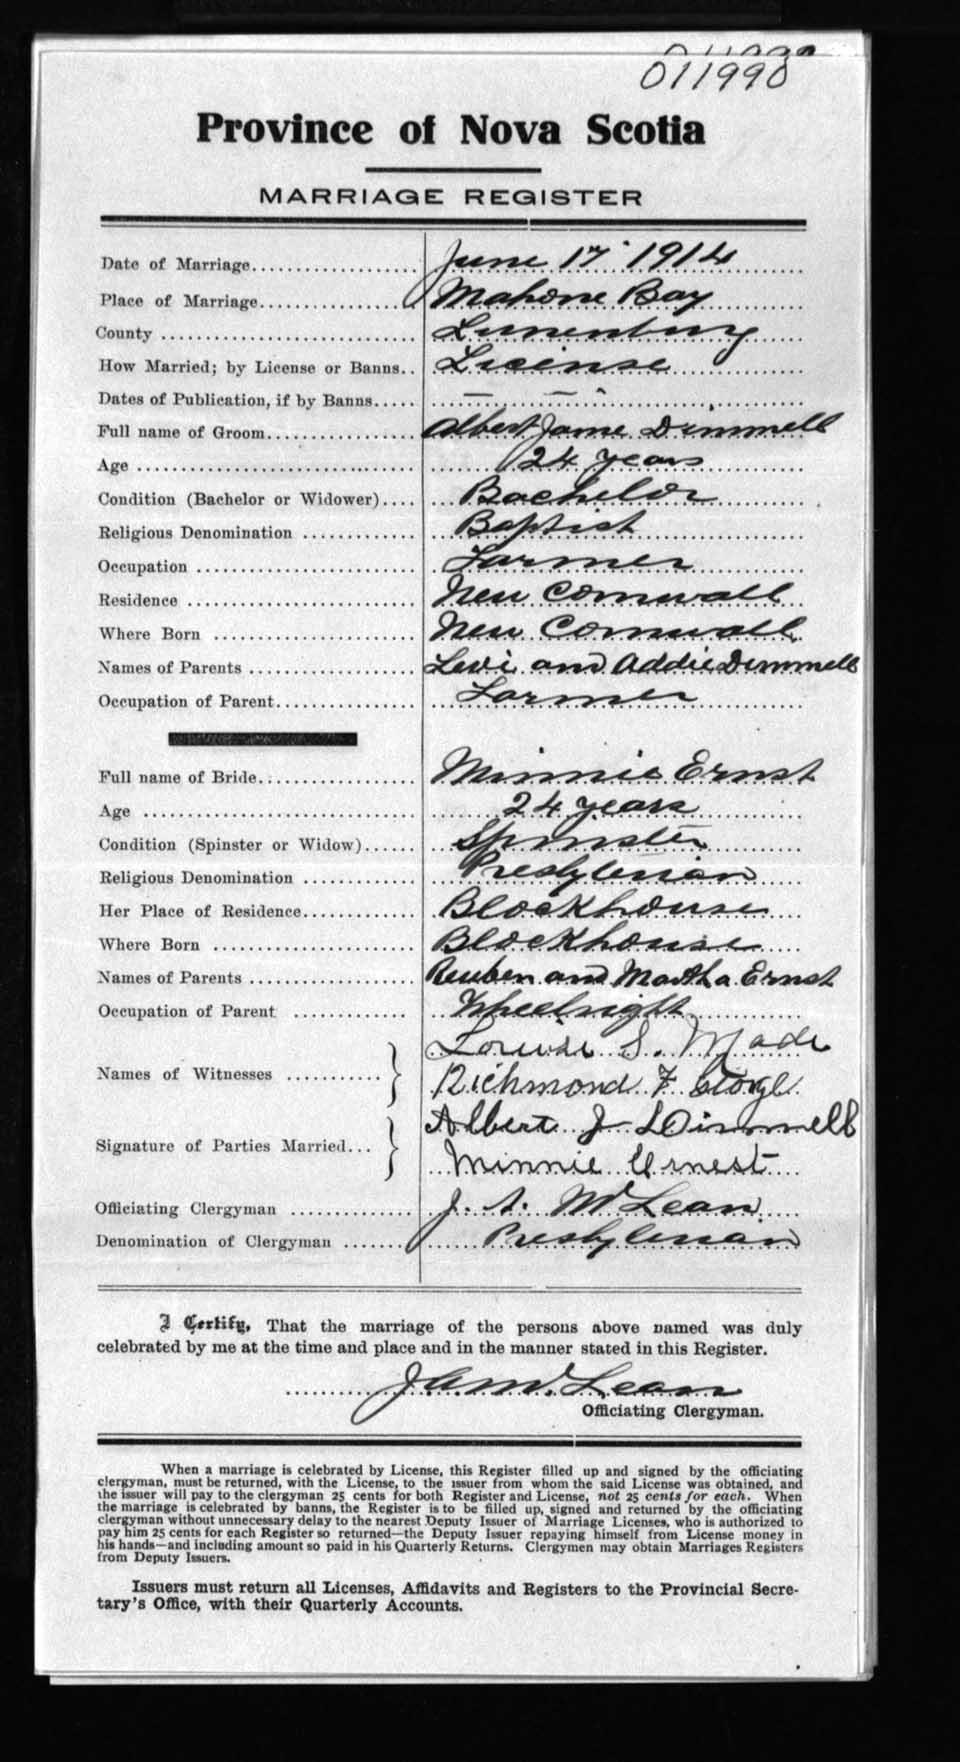 011990
Province of Nova Scotia
MARRIAGE REGISTER
Date of Marriage.................... June 17 1914
Place of Marriage.................. Mahone Bay
County ............................. Lunenburg
How Married; by License or Banns.. License
Dates of Publication, if by Banns..... — —
Full name of Groom.................. Albert Jame Dimmell
Age ................................ 24 years
Condition (Bachelor or Widower).... Bachelor
Religious Denomination ............. Baptist
Occupation ......................... Farmer
Residence .......................... New Cornwall
Where Born ........................ New Cornwall
Names of Parents ................... Levi and Addie Dimmell
Occupation of Parent................ Farmer
Full name of Bride.................. Minnie Ernst
Age ................................ 24 years
Condition (Spinster or Widow)...... Spinster
Religious Denomination ............. Presbyterian
Her Place of Residence............. Blockhouse
Where Born ........................ Blockhouse
Names of Parents ................... Reuben and Martha Ernst
Occupation of Parent .............. Wheelright
Names of Witnesses ........... } Louise S. Made
Richmond F
Signature of Parties Married... } Albert J Dimmell
Minnie Ernest
Officiating Clergyman .............. J. A. McLean
Denomination of Clergyman ....... Presbyterian
I Certify, That the marriage of the persons above named was duly
celebrated by me at the time and place and in the manner stated in this Register.
J A McLean
Officiating Clergyman.
When a marriage is celebrated by License, this Register filled up and signed by the officiating
clergyman, must be returned, with the License, to the issuer from whom the said License was obtained, and
the issuer will pay to the clergyman 25 cents for both Register and License, not 25 cents for each. When
the marriage is celebrated by banns, the Register is to be filled up, signed and returned by the officiating
clergyman without unnecessary delay to the nearest Deputy Issuer of Marriage Licenses, who is authorized to
pay him 25 cents for each Register so returned—the Deputy Issuer repaying himself from License money in
his hands—and including amount so paid in his Quarterly Returns. Clergymen may obtain Marriages Registers
from Deputy Issuers.
Issuers must return all Licenses, Affidavits and Registers to the Provincial Secre-
tary's Office, with their Quarterly Accounts.